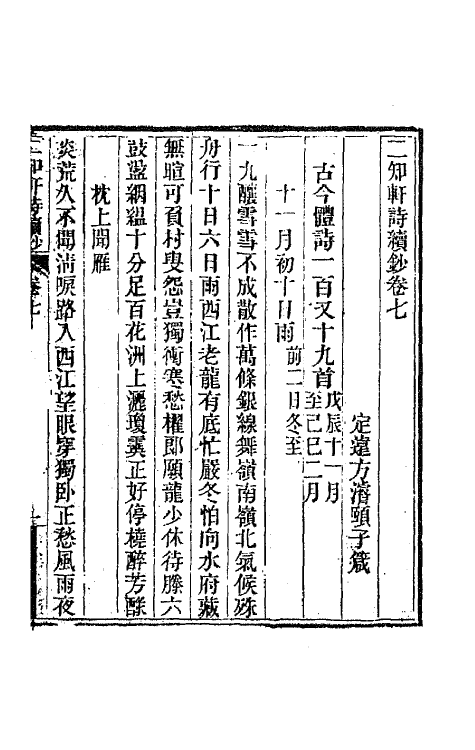 二知軒詩續鈔卷七
定遠方濬頤子箴
古今體詩一百又十九首戊辰十一月至己巳二月
十一月初十日雨前二日冬至
一九釀雪雪不成散作萬條銀線舞嶺南嶺北氣候殊
舟行十日六日雨西江老龍有底忙嚴冬怕向水府藏
無暄可負村叟怨豈獨衝寒愁櫂郎願龍少休待滕六
鼓盪絪縕十分足百花洲上灑瓊霙正好停橈醉芳醁
枕上聞雁
炎荒久不聞清唳路入西江望眼穿獨臥正愁風雨夜
二知軒詩續鈔
卷七